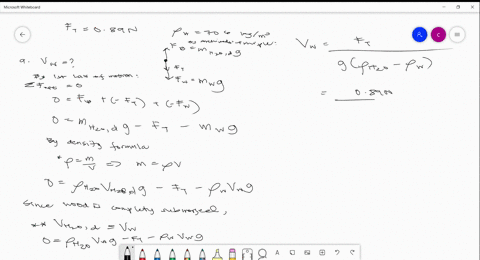 Microsoft Whiteboard
F_T = 0.89 N
ρ_w = 706 kg/m³
F_B = m_{H₂O,d} g
F_T
F_w = m_w g
a. V_w = ?
By 1st law of motion:
ΣF = 0:
0 = F_B + (-F_T) + (-F_w)
0 = m_{H₂O,d} g - F_T - m_w g
By density formula
* ρ = m/V ⇒ m = ρV
0 = ρ_{H₂O} V_{H₂O,d} g - F_T - ρ_w V_w g
Since wood is completely submerged,
** V_{H₂O,d} = V_w
0 = ρ_{H₂O} V_w g - F_T - ρ_w V_w g
V_w = F_T / g(ρ_{H₂O} - ρ_w)
= 0.89N